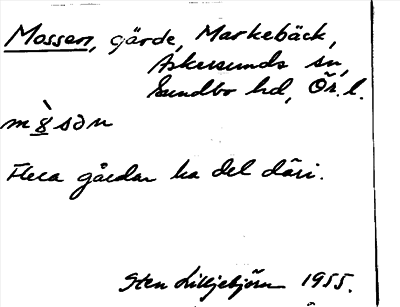 Mossen, gärde, Markebäck,
Askersunds sn,
Sundbo hd, Ör. l.
m8̀sən
Flera gårdar ha del däri.
Sten Lilljebjörn 1955.